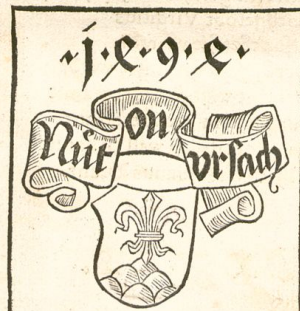 ·1·4·9·4·
Nüt on vrsach